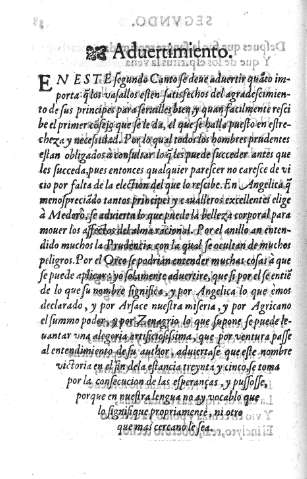 Aduertimiento.
EN ESTE segundo Canto se deue aduertir quāto im-
porta q̄ los vasallos estē satisfechos del agradescimien
to de sus principes para seruilles bien, y quan facilmente resci
be el primer cōsejo que se le da, el que se halla puesto en estre-
cheza y necesidad. Por lo qual todos los hombres prudentes
estan obligados à consultar lo q̄ les puede succeder antes que
les succeda, pues entonces qualquier parescer no caresce de vi
cio por falta de la electiōn del que lo rescibe. En Angelica q̄
menospreciādo tantos principes y caualleros excellentes elige
à Medoro, se aduierta lo que puede la belleza corporal para
mouer los affectos del alma racional. Por el anillo an enten-
dido muchos la Prudencia con la qual se ocultan de muchos
peligros. Por el Orco se podrian entender muchas cosas à que
se puede aplicar: yo solamente aduertire, que si por el se entiē
de lo que su nombre significa, y por Angelica lo que emos
declarado, y por Arface nuestra miseria, y por Agricano
el summo poder, y por Zenagrio lo que supone se puede le-
uantar vna alegoria artificiosissima, que por ventura passe
al entendimiento de su author, aduiertase que este nombre
victoria en el fin de la estancia treynta y cinco, se toma
por la consecucion de las esperanças, y pussosse,
porque en nuestra lengua no ay vocablo que
lo signifique propriamente, ni otro
que mas cercano le sea.